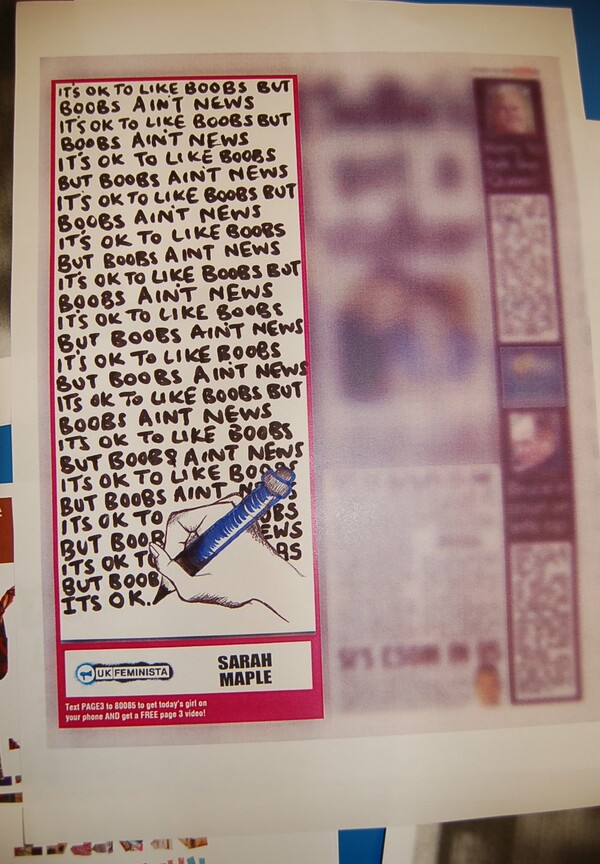 IT'S OK TO LIKE BOOBS BUT
BOOBS AIN'T NEWS
IT'S OK TO LIKE BOOBS BUT
BOOBS AIN'T NEWS
IT'S OK TO LIKE BOOBS
BUT BOOBS AIN'T NEWS
IT'S OK TO LIKE BOOBS BUT
BOOBS AIN'T NEWS
IT'S OK TO LIKE BOOBS
BUT BOOBS AINT NEWS
IT'S OK TO LIKE BOOBS BUT
BOOBS AIN'T NEWS
IT'S OK TO LIKE BOOBS
BUT BOOBS AIN'T NEWS
IT'S OK TO LIKE BOOBS
BUT BOOBS AIN'T NEWS
ITS OK TO LIKE BOOBS BUT
BOOBS AINT NEWS
ITS OK TO LIKE BOOBS
BUT BOOBS AINT NEWS
ITS OK TO LIKE BOOBS
BUT BOOBS AINT
ITS OK TO OBS
BUT BOOB EWS
ITS OK T BS
BUT BOOB
ITS OK.
UK FEMINISTA
SARAH
MAPLE
Text PAGE3 to 80085 to get today's girl on
your phone AND get a FREE page 3 video!